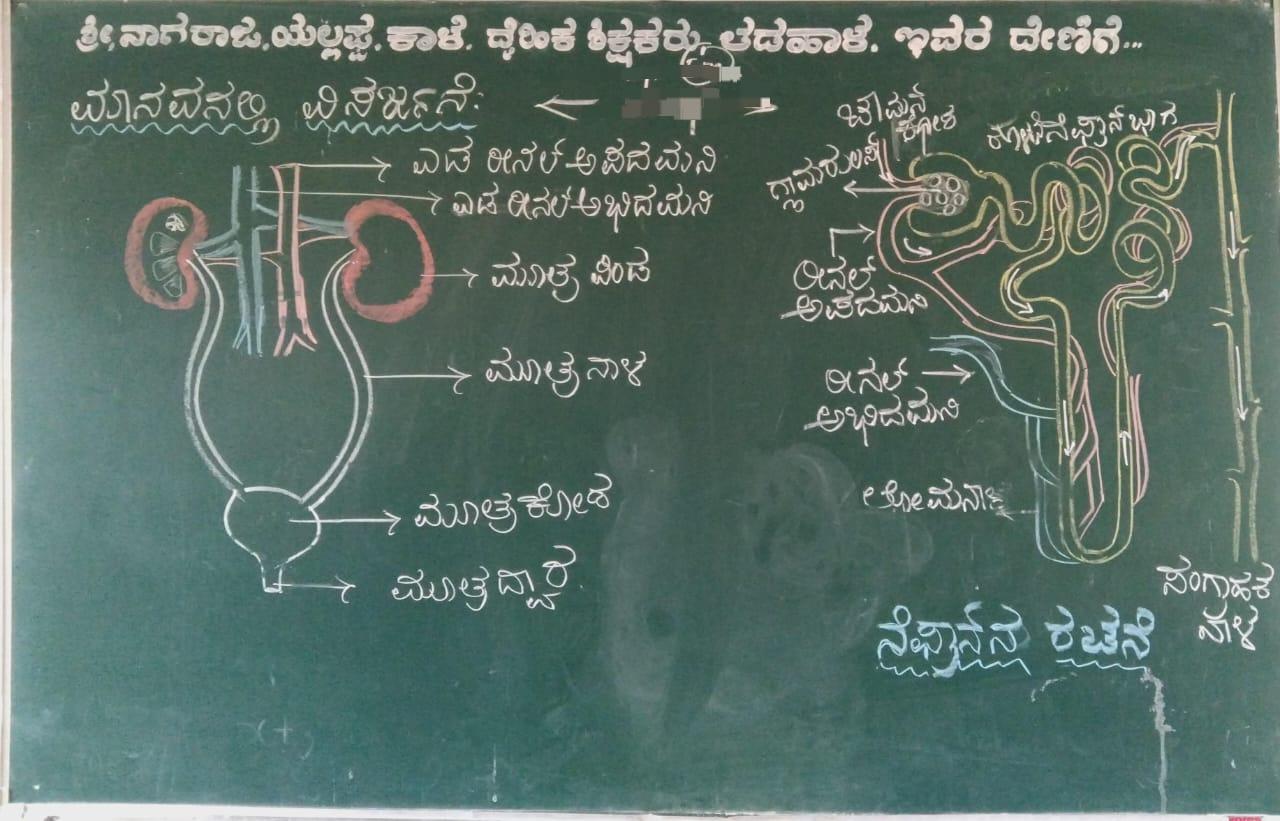 ಶ್ರೀ. ನಾಗರಾಜ. ಯಲ್ಲಪ್ಪ. ಕಾಳೆ. ದೈಹಿಕ ಶಿಕ್ಷಕರು ತಡಹಾಳ. ಇವರ ದೇಣಿಗೆ...
ಮಾನವನಲ್ಲಿ ವಿಸರ್ಜನೆ:
ಎಡ ರೀನಲ್ ಅಪದಮನಿ
ಎಡ ರೀನಲ್ ಅಭಿದಮನಿ
ಮೂತ್ರ ಪಿಂಡ
ಮೂತ್ರ ನಾಳ
ಮೂತ್ರಕೋಶ
ಮೂತ್ರ ದ್ವಾರ
ಬೌಮನ್ನ
ಕೋಶ
ಗ್ಲಾಮರುಲಸ್
ನೆಫ್ರಾನ್ ಭಾಗ
ರೀನಲ್
ಅಪದಮನಿ
ರೀನಲ್
ಅಭಿದಮನಿ
ಲೋಮನಾಳ
ಸಂಗ್ರಾಹಕ
ನಾಳ
ನೆಫ್ರಾನ್‌ನ ರಚನೆ